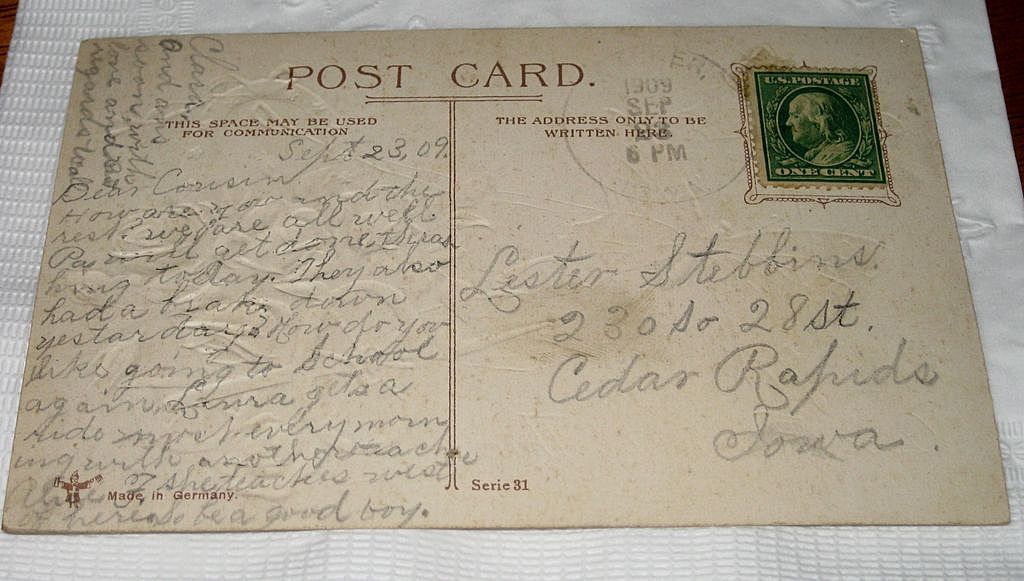 POST CARD.
THIS SPACE MAY BE USED
FOR COMMUNICATION
THE ADDRESS ONLY TO BE
WRITTEN HERE.
1909
SEP
6 PM
U.S. POSTAGE
ONE CENT
Sept 23, 09.
Dear Cousin
How are you and the
rest. we are all well
Pa will get done thrash
hing today. They also
had a brake down
yestarday. How do you
like going to School
again Laura gets a
ride most every morn
ing with another teache
she teaches west
of here so be a good boy.
Lester Stebbins.
230 So 28 St.
Cedar Rapids
Iowa.
Made in Germany.
Serie 31